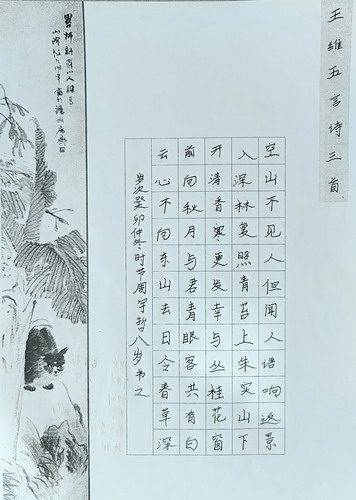 王維五言诗三首
空山不见人但闻人语响返景
入深林复照青苔上朱实山下
开清香寒更发幸与丛桂花窗
前向秋月与君青眼客共有白
云心不向东山去日令春草深
岁次癸卯仲冬时节周宇哲八岁书之
師新羅山人